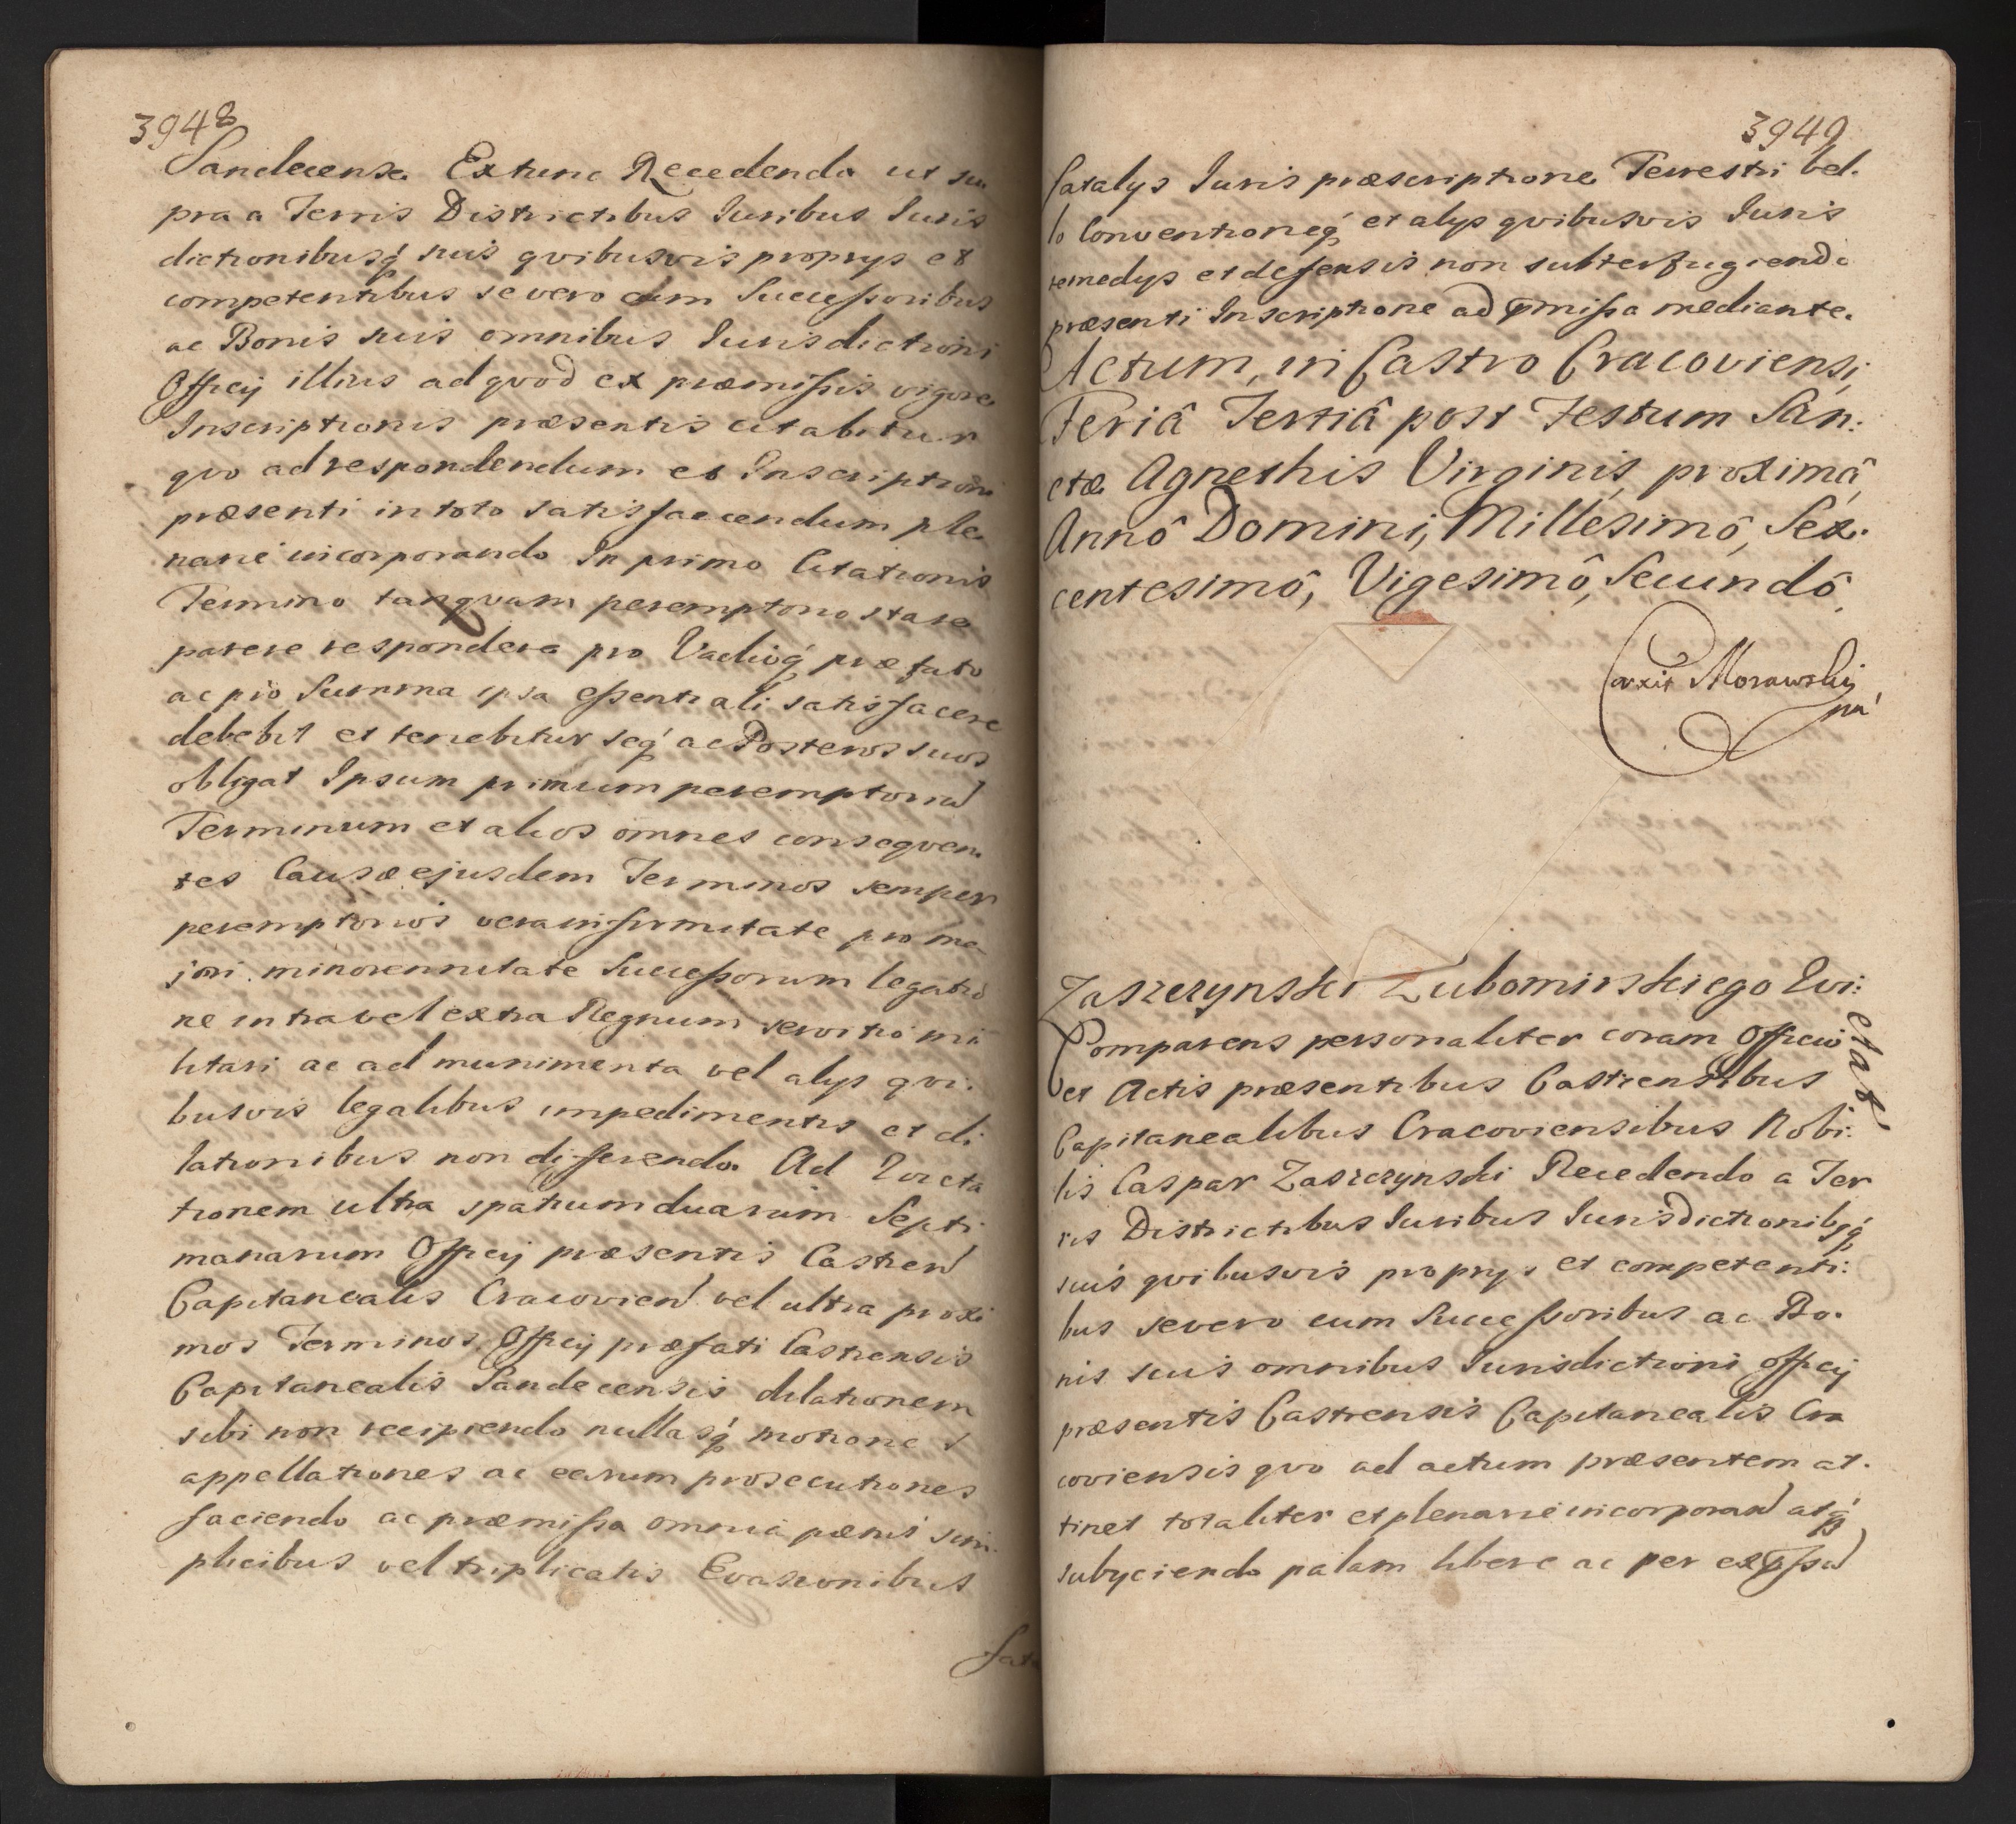 3948
Sandecense Extunc Recedendo ut su
pra a Terris Districtibus Iuribus Iuris
dictionibusq́ suis qvibusvis proprys et
competentibus se vero cum Successoribus
ac Bonis suis omnibus Iurisdictioni
Officij illius ad qvod ex præmissis vigore
Inscriptionis præsentis citabitur
qvo ad respondendum et Inscriptioni
præsenti in toto satisfaciendum ple
narie incorporando In primo Citationis
Termino tanqvam peremptorio stare
parere respondere pro Vadioq́ præfato
ac pro Summa ipsa essentiali satisfacere
debebit et tenebitur seq́ ac Posteros suos
obligat Ipsum primum peremptoriu
Terminum et alios omnes conseqven
tes Causæ ejusdem Terminos semper
peremptorios vera infirmitate pro ma
jori minorennitate Successorum legatio
ne intra vel extra Regnum servitio mi
litari ac ad munimenta vel alys qvi.
busvis legalibus impedimentis et di
lationibus non differendo Ad
tionem ultra spatium duarum Septi
manarum Officij præsentis Castren
Capitanealis Cracovien vel ultra proxi
mos Terminos Officij præfati Castrensis
Capitanealis Sandecensis dilationem
sibi non recipiendo nullasq́ motiones
appellationes ac earum prosecutiones
faciendo ac præmissa omnia pænis sim
plicibus vel triplicatis Evasionibus
fata
3949
fatalys Iuris præscriptione Terrestri bel.
lo Conventioneq́ et alys qvibusvis Iuris
remedys et defensis non subterfugiendi
præsenti Inscriptione ad præmissa mediante.
Actum, in Castro Cracoviensi,
Feriâ Tertiâ post Festum San:
ctæ Agnethis Virginis proximâ
Annô Domini, Millesimô, Sex.
centesimô, Vigesimô, Secundô
Morawski
Zaszczynski Lubomirskiego Qvi:
etat
Comparens personaliter coram Officio
et Actis præsentibus Castrensibus
Capitanealibus Cracoviensibus Nobi:
lis Caspar Zaszczynski Recedendo a Ter
ris Districtibus Iuribus Iurisdictionibsq́
suis qvibusvis proprys et competenti:
bus se vero cum Successoribus ac Bo.
nis suis omnibus Iurisdictioni officij
præsentis Castrensis Capitanealis Cra
coviensis qvo ad actum præsentem at.
tinet totaliter et plenarie incorporan atq́
subyciendo palam libere ac per expssu